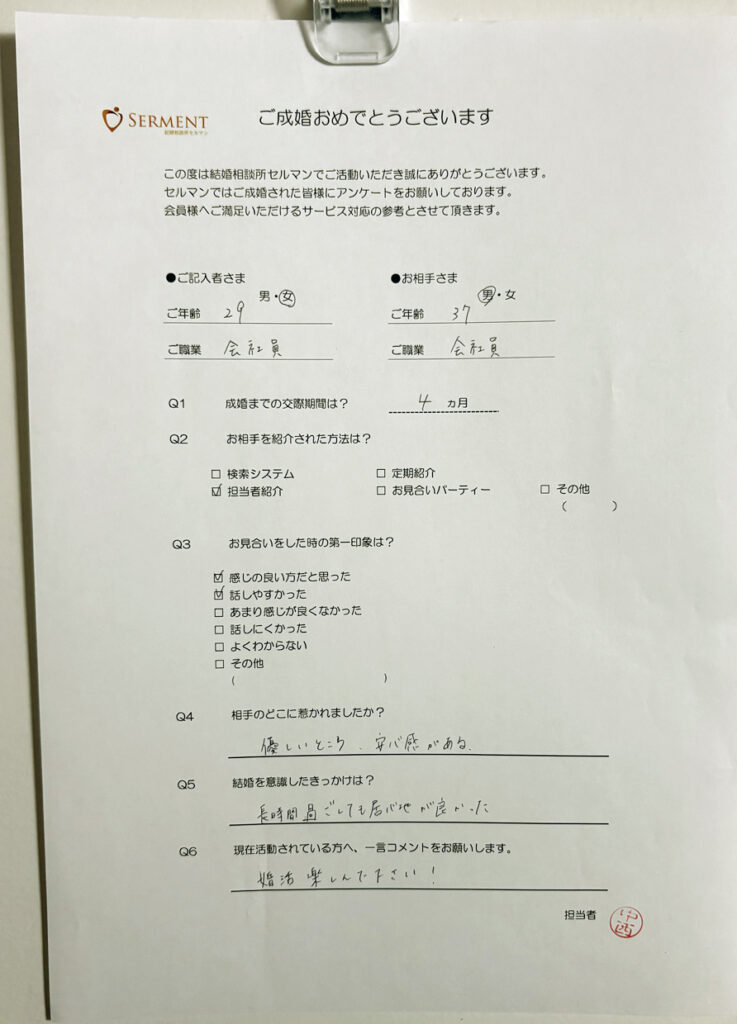 SERMENT
結婚相談所セルマン
ご成婚おめでとうございます
この度は結婚相談所セルマンでご活動いただき誠にありがとうございます。
セルマンではご成婚された皆様にアンケートをお願いしております。
会員様へご満足いただけるサービス対応の参考とさせて頂きます。
●ご記入者さま ●お相手さま
男・女 男・女
ご年齢 29 ご年齢 37
ご職業 会社員 ご職業 会社員
Q1 成婚までの交際期間は? 4 ヵ月
Q2 お相手を紹介された方法は?
□ 検索システム □ 定期紹介
☑ 担当者紹介 □ お見合いパーティー □ その他
( )
Q3 お見合いをした時の第一印象は?
☑ 感じの良い方だと思った
☑ 話しやすかった
□ あまり感じが良くなかった
□ 話しにくかった
□ よくわからない
□ その他
( )
Q4 相手のどこに惹かれましたか?
優しいところ、安心感がある。
Q5 結婚を意識したきっかけは?
長時間過ごしても居心地が良かった
Q6 現在活動されている方へ、一言コメントをお願いします。
婚活楽しんで下さい!
担当者 中西